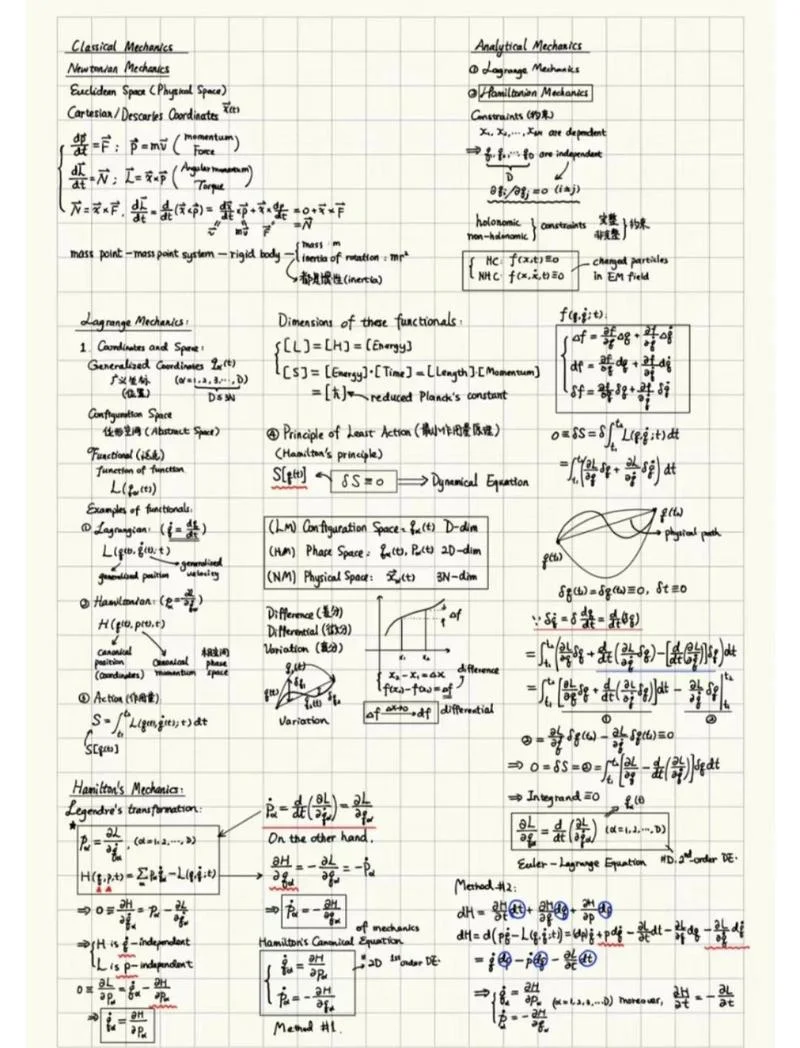 Classical Mechanics
Newtonian Mechanics
Euclidean Space (Physical Space)
Cartesian/Descartes Coordinates x⃗(t)
{ dp⃗/dt = F⃗ ; p⃗ = mv⃗ ( momentum Force )
dL⃗/dt = N⃗ ; L⃗ = x⃗×p⃗ ( Angular momentum Torque )
N⃗ = x⃗×F⃗. dL⃗/dt = d/dt(x⃗×p⃗) = dx⃗/dt×p⃗ + x⃗×dp⃗/dt = 0 + x⃗×F⃗
v⃗ mv⃗ F⃗ = N⃗
mass point – mass point system – rigid body – { mass : m
inertia of rotation : mr²
都是惯性 (inertia)
Analytical Mechanics
① Lagrange Mechanics
② Hamiltonian Mechanics
Constraints (约束)
x₁, x₂, ..., x₃ₙ are dependent
⇒ q₁, q₂, ... q_D are independent
D
∂qᵢ/∂qⱼ = 0 (i≠j)
holonomic
non-holonomic } constraints 完整 非完整 } 约束
{ HC: f(x,t) ≡ 0
NHC: f(x,ẋ,t) ≡ 0
charged particles
in EM field
Lagrange Mechanics:
1. Coordinates and Space:
Generalized Coordinates qα(t)
广义坐标 (α=1,2,3,...,D)
(位置) D≤3N
Configuration Space
位形空间 (Abstract Space)
Functional (泛函)
function of function
L(qα(t))
Examples of functionals:
① Lagrangian: (q̇ = dq/dt)
L(q(t), q̇(t); t)
generalized position generalized velocity
② Hamiltonian: (p = ∂L/∂q̇)
H(q(t), p(t), t)
canonical position (coordinates) canonical momentum 相空间 phase space
③ Action (作用量)
S = ∫_{t₁}^{t₂} L(q(t), q̇(t); t) dt
S[q(t)]
Dimensions of these functionals:
{ [L] = [H] = [Energy]
[S] = [Energy]·[Time] = [Length]·[Momentum]
= [ħ] reduced Planck's constant
④ Principle of Least Action (最小作用量原理)
(Hamilton's principle)
S[q(t)] ← δS ≡ 0 ⇒ Dynamical Equation
(LM) Configuration Space: qα(t) D-dim
(HM) Phase Space: qα(t), Pα(t) 2D-dim
(NM) Physical Space: x⃗(t) 3N-dim
Difference (差分)
Differential (微分)
Variation (变分)
Δf
x₁ x₂
{ x₂ - x₁ = Δx
f(x₂) - f(x₁) = Δf
difference
q(t₁) δq q(t₂)
Variation
Δf →(Δx→0) df differential
f(q, q̇; t):
{ Δf = ∂f/∂q Δq + ∂f/∂q̇ Δq̇
df = ∂f/∂q dq + ∂f/∂q̇ dq̇
δf = ∂f/∂q δq + ∂f/∂q̇ δq̇
0 ≡ δS = δ∫_{t₁}^{t₂} L(q, q̇; t) dt
= ∫_{t₁}^{t₂} (∂L/∂q δq + ∂L/∂q̇ δq̇) dt
q(t₂)
physical path
q(t₁)
δq(t₁) = δq(t₂) ≡ 0, δt ≡ 0
∵ δq̇ = δ dq/dt = d/dt(δq)
= ∫_{t₁}^{t₂} (∂L/∂q δq + d/dt(∂L/∂q̇ δq) - [d/dt(∂L/∂q̇)]δq) dt
= ∫_{t₁}^{t₂} [∂L/∂q δq + d/dt(∂L/∂q̇ δq)] dt - ∂L/∂q̇ δq |_{t₁}^{t₂}
① ②
② = ∂L/∂q̇ δq(t₂) - ∂L/∂q̇ δq(t₁) ≡ 0
⇒ 0 = δS = ② = ∫_{t₁}^{t₂} [∂L/∂q - d/dt(∂L/∂q̇)] δq dt
⇒ Integrand ≡ 0 qα(t)
∂L/∂qα = d/dt(∂L/∂q̇α) (α=1,2,...,D)
Euler-Lagrange Equation #D. 2nd-order DE.
Hamilton's Mechanics:
Legendre's transformation:
★ pα = ∂L/∂q̇α, (α=1,2,...,D)
H(q,p,t) = Σ pα q̇α - L(q, q̇; t)
⇒ 0 ≡ ∂H/∂q̇α = pα - ∂L/∂q̇α
⇒ { H is q̇-independent
L is p-independent
0 ≡ ∂L/∂pα = q̇α - ∂H/∂pα
⇒ q̇α = ∂H/∂pα
ṗα = d/dt(∂L/∂q̇α) = ∂L/∂qα
On the other hand,
∂H/∂qα = -∂L/∂qα = -ṗα
⇒ ṗα = -∂H/∂qα
of mechanics
Hamilton's Canonical Equation
{ q̇α = ∂H/∂pα
ṗα = -∂H/∂qα
#2D 1st order DE.
Method #1.
Method #2:
dH = ∂H/∂t dt + ∂H/∂q dq + ∂H/∂p dp
dH = d(pq̇ - L(q, q̇; t)) = (dp)q̇ + pdq̇ - ∂L/∂t dt - ∂L/∂q dq - ∂L/∂q̇ dq̇
= q̇ dp - ṗ dq - ∂L/∂t dt
⇒ { q̇α = ∂H/∂pα (α=1,2,...D) moreover, ∂H/∂t = -∂L/∂t
ṗ = -∂H/∂qα